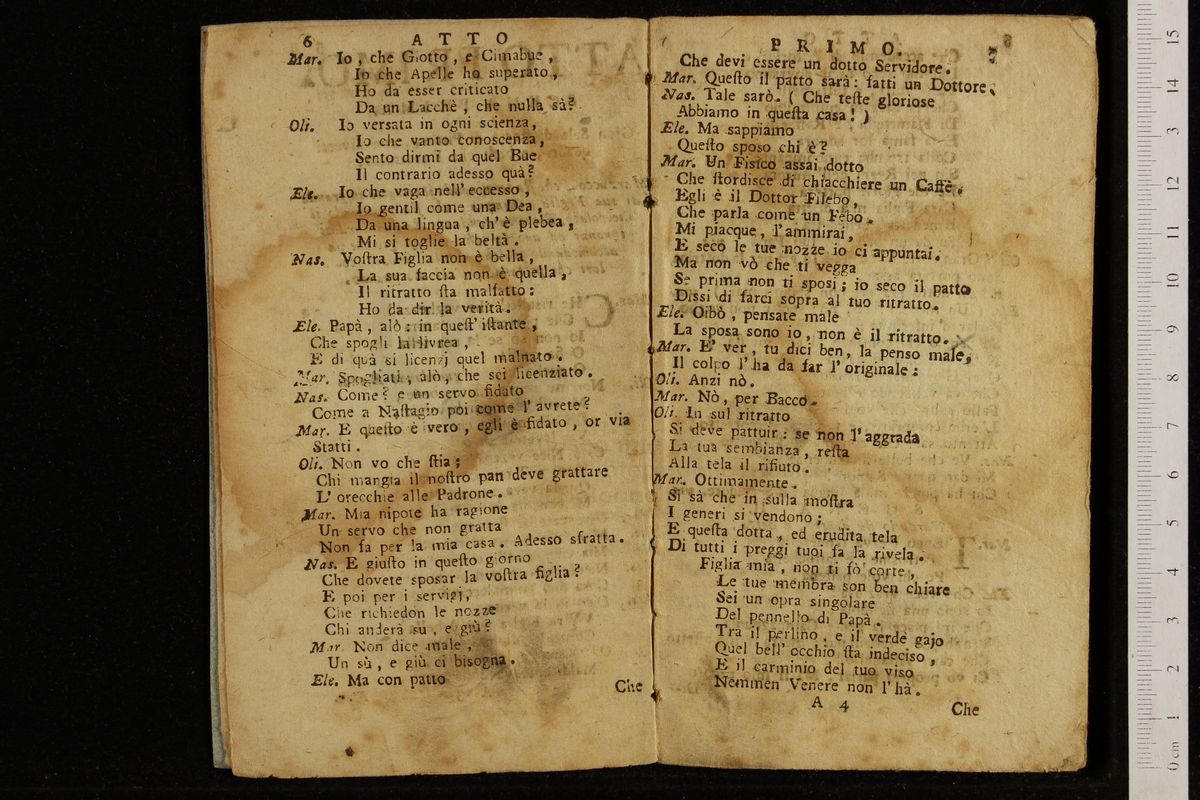 6
ATTO
Mar. Io, che Giotto, e Cimabue,
Io che Apelle ho superato,
Ho da esser criticato
Da un Lacchè, che nulla sà?
Oli. Io versata in ogni scienza,
Io che vanto conoscenza,
Sento dirmi da quel Bue
Il contrario adesso quà?
Ele. Io che vaga nell' eccesso,
Io gentil come una Dea,
Da una lingua, ch' è plebea,
Mi si toglie la beltà.
Nas. Voſtra Figlia non è bella,
La sua faccia non è quella,
Il ritratto ſta malfatto:
Ho da dir la verità.
Ele. Papà, alò: in queſt' iſtante,
Che spogli la livrea,
E di quà si licenzj quel malnato.
Mar. Spogliati, alò, che sei licenziato.
Nas. Come? e un servo fidato
Come a Naſtagio poi come l' avrete?
Mar. E queſto è vero, egli è fidato, or via
Statti.
Oli. Non vo che ſtia;
Chi mangia il noſtro pan deve grattare
L' orecchie alle Padrone.
Mar. Mia nipote ha ragione
Un servo che non gratta
Non fa per la mia casa. Adesso sfratta.
Nas. E giuſto in queſto giorno
Che dovete sposar la voſtra figlia?
E poi per i servigj,
Che richiedon le nozze
Chi anderà su, e giù?
Mar. Non dice male,
Un sù, e giù ci bisogna.
Ele. Ma con patto
Che
PRIMO.
7
Che devi essere un dotto Servidore.
Mar. Queſto il patto sarà: fatti un Dottore.
Nas. Tale sarò. (Che teſte gloriose
Abbiamo in queſta casa!)
Ele. Ma sappiamo
Queſto sposo chi è?
Mar. Un Fisico assai dotto
Che ſtordisce di chiacchiere un Caffè.
Egli è il Dottor Filebo,
Che parla come un Febo.
Mi piacque, l' ammirai,
E seco le tue nozze io ci appuntai.
Ma non vò che ti vegga
Se prima non ti sposi; io seco il patto
Dissi di farci sopra al tuo ritratto.
Ele. Oibò, pensate male
La sposa sono io, non è il ritratto.
Mar. E' ver, tu dici ben, la penso male,
Il colpo l' ha da far l' originale:
Oli. Anzi nò.
Mar. Nò, per Bacco.
Oli. In sul ritratto
Si deve pattuir: se non l' aggrada
La tua sembianza, reſta
Alla tela il rifiuto.
Mar. Ottimamente.
Si sà che in sulla moſtra
I generi si vendono;
E queſta dotta, ed erudita tela
Di tutti i preggi tuoi fa la rivela.
Figlia mia, non ti fò corte,
Le tue membra son ben chiare
Sei un opra singolare
Del pennello di Papà.
Tra il perlino, e il verde gajo
Quel bell' occhio ſta indeciso,
E il carminio del tuo viso
Nemmen Venere non l' hà.
A 4
Che
15
14
13
12
11
10
9
8
7
6
5
4
3
2
1
0 cm